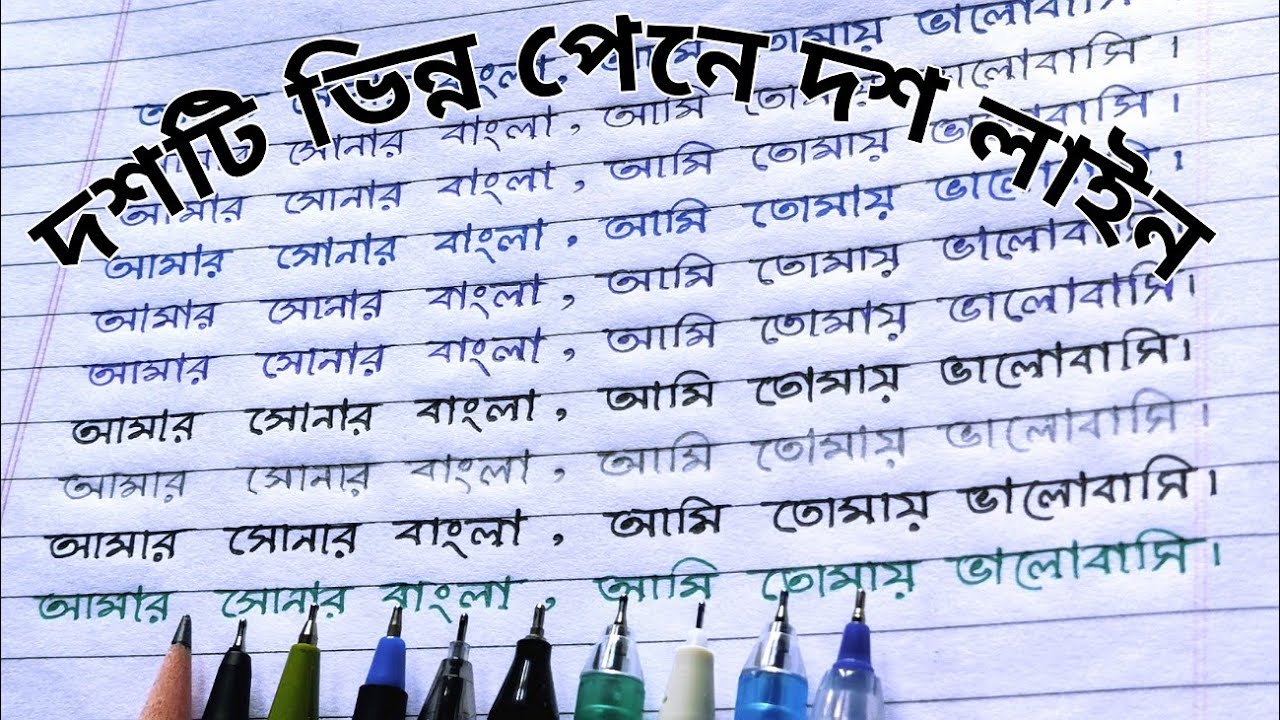 দশটি ভিন্ন পেনে দশ লাইন
তোমায় ভালোবাসি
সোনার বাংলা, আমি ভালোবাসি ।
আমার সোনার বাংলা, আমি তোমায় ভালোবাসি ।
আমার সোনার বাংলা, আমি তোমায় ভালোবাসি ।
আমার সোনার বাংলা, আমি তোমায় ভালোবাসি
আমার সোনার বাংলা, আমি তোমায় ভালোবাসি।
আমার সোনার বাংলা, আমি তোমায় ভালোবাসি।
আমার সোনার বাংলা, আমি তোমায় ভালোবাসি ।
আমার সোনার বাংলা, আমি তোমায় ভালোবাসি।
আমার সোনার বাংলা, আমি তোমায় ভালোবাসি ।